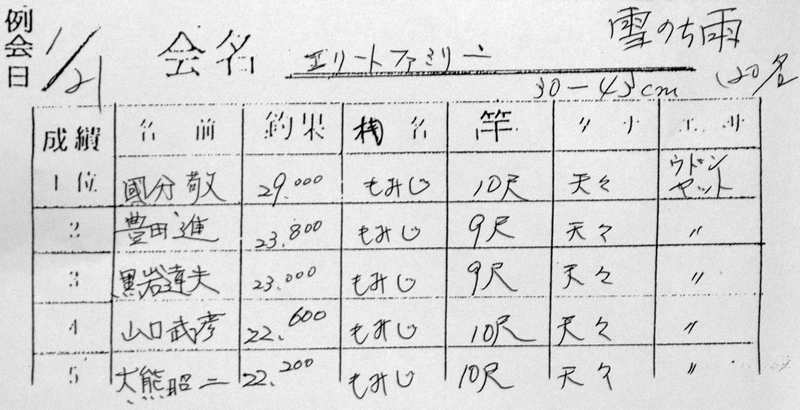 例会日 1/21 会名 エリートファミリー 雪のち雨
30-43cm 120名
成績 名前 釣果 桟名 竿 タナ エサ
1位 國分敬 29.000 もみじ 10尺 天々 ウドンセット
2 豊田進 23.800 もみじ 9尺 天々 〃
3 黒岩達夫 23.000 もみじ 9尺 天々 〃
4 山口武彦 22.600 もみじ 10尺 天々 〃
5 大熊昭二 22.200 もみじ 10尺 天々 〃